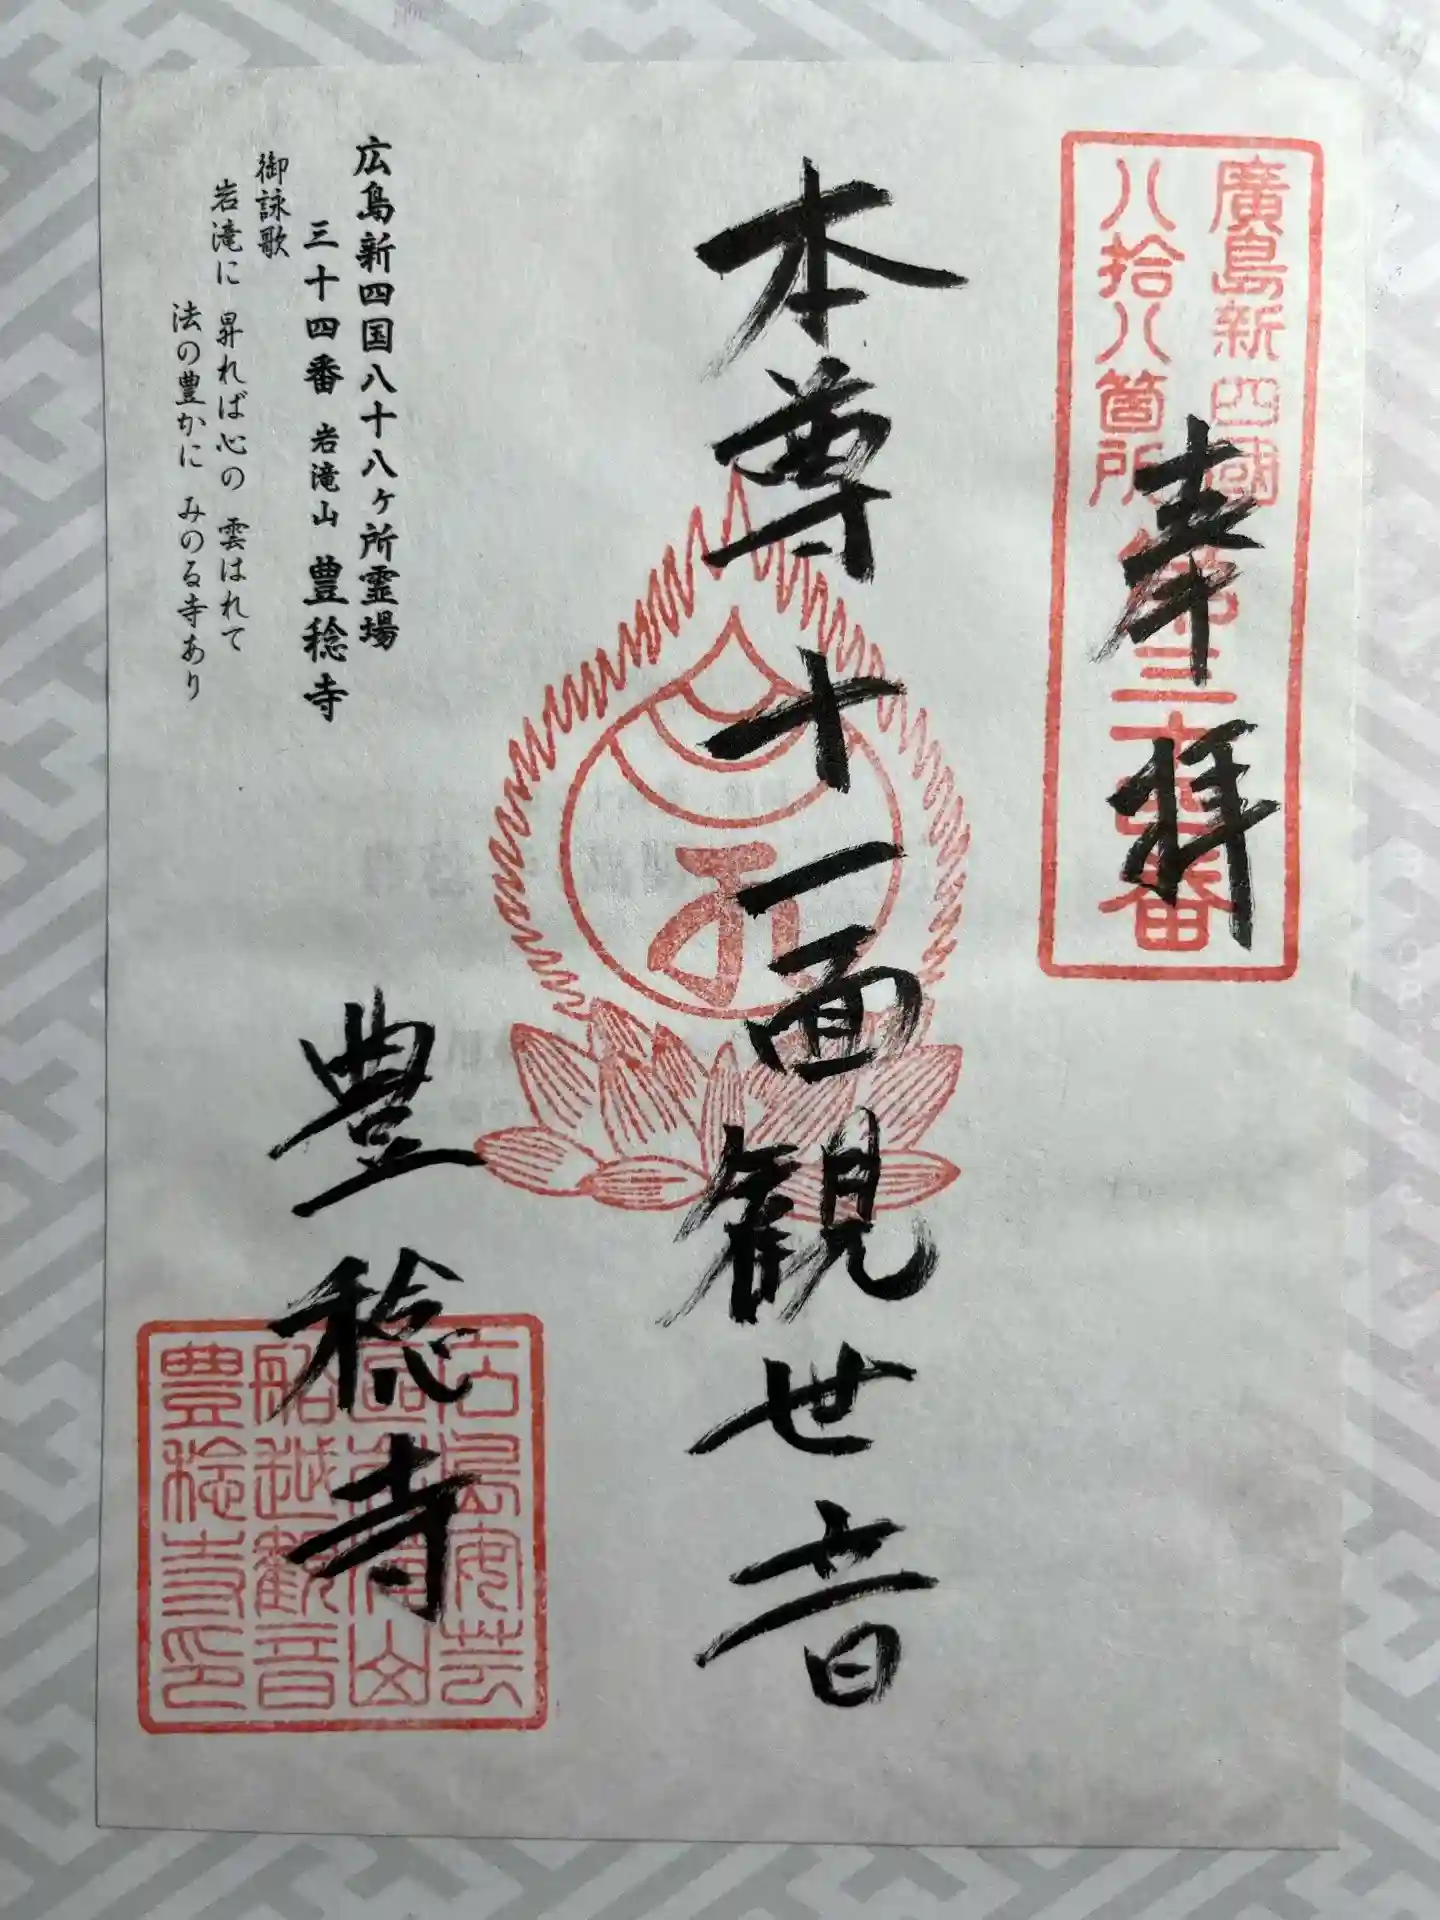 廣島新四國
八拾八箇所
第三十四番
奉拝
本尊十一面観世音
豊稔寺
広島新四国八十八ヶ所霊場
三十四番 岩滝山 豊稔寺
御詠歌
岩滝に 昇れば心の 雲はれて
法の豊かに みのる寺あり
広島安芸
船越観音
豊稔寺印